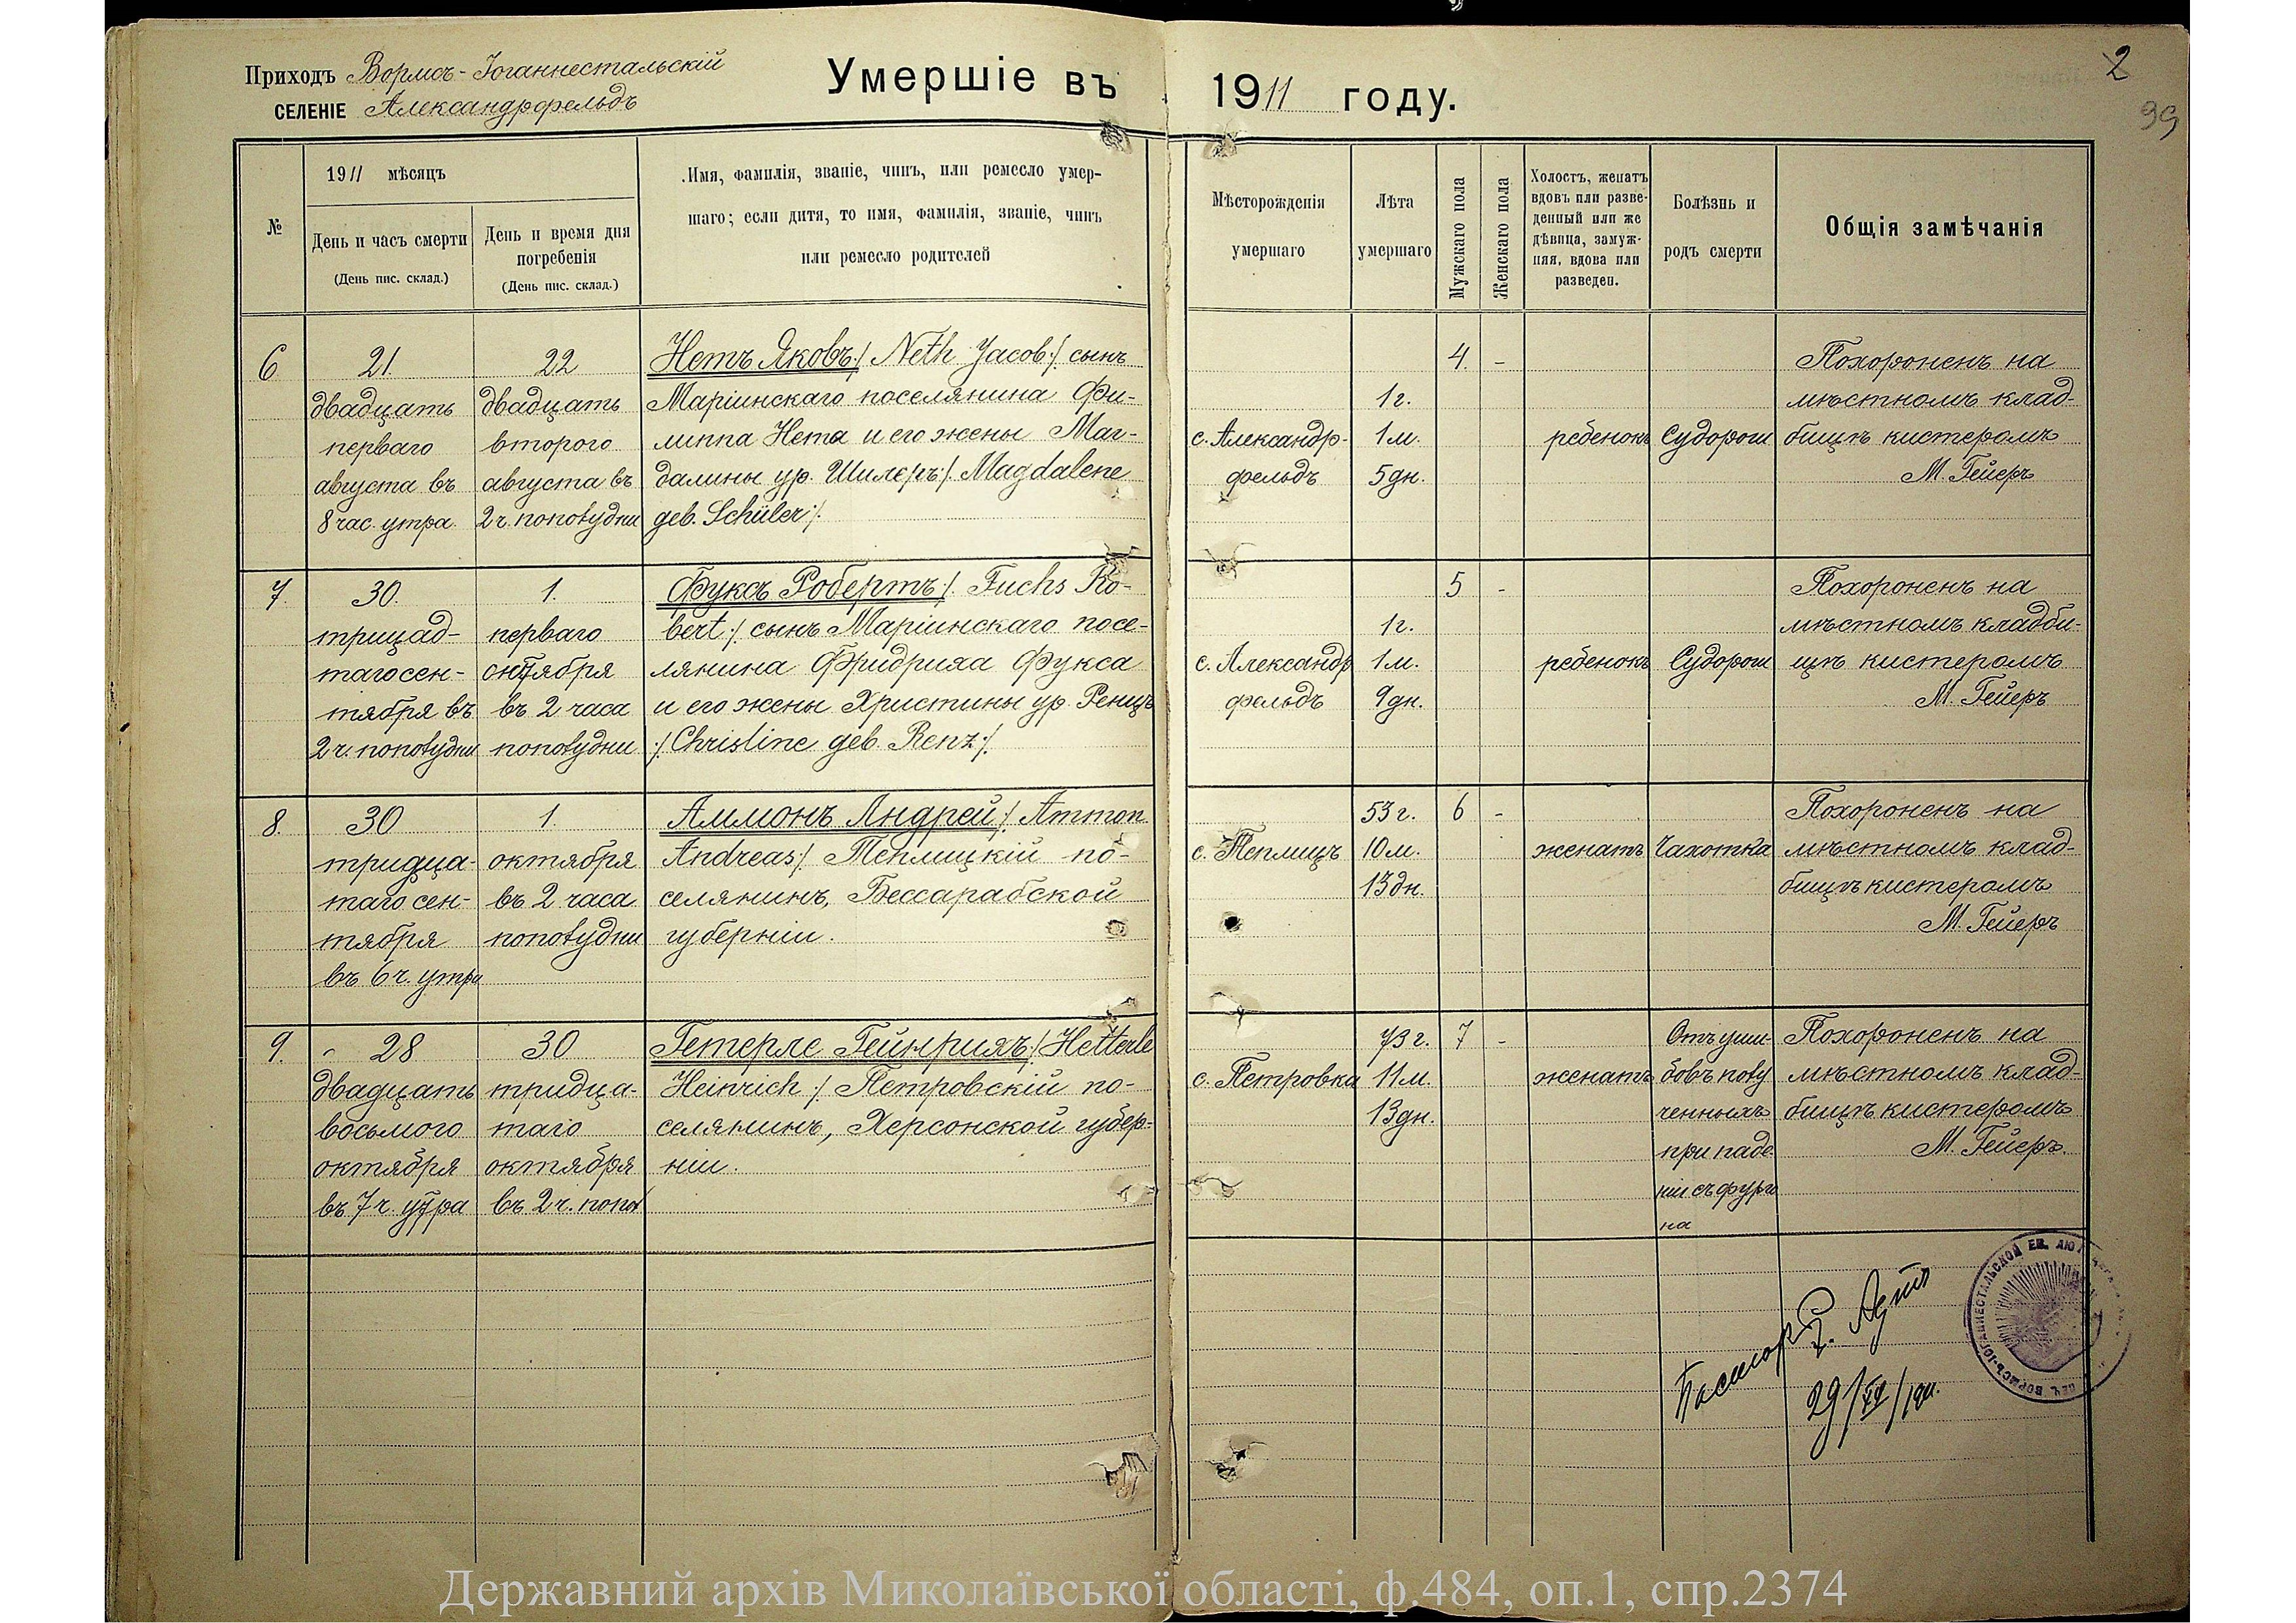 Приходъ Вормсъ-Іоганнестальскій
СЕЛЕНІЕ Александрфельдъ
Умершіе въ 1911 году.
2
99
№
1911 мѣсяцъ
День и часъ смерти
(День пис. склад.)
День и время дня
погребенія
(День пис. склад.)
Имя, фамилія, званіе, чинъ, или ремесло умер-
шаго; если дитя, то имя, фамилія, званіе, чинъ
или ремесло родителей
Мѣсторожденія
умершаго
Лѣта
умершаго
Мужскаго пола
Женскаго пола
Холостъ, женатъ
вдовъ или разве-
денный или же
дѣвица, замуж-
няя, вдова или
разведен.
Болѣзнь и
родъ смерти
Общія замѣчанія
6
21
двадцать
перваго
августа въ
8 час. утра.
22
двадцать
второго
августа въ
2 ч. пополудни
Нетъ Яковъ :/ Neth Jacob :/ сынъ
Маріинскаго поселянина Фи-
липпа Нета и его жены Маг-
далины ур. Шилеръ :/ Magdalene
geb. Schüler :/
с. Александр-
фельдъ
1 г.
1 м.
5 дн.
4.
-
ребенокъ
Судороги
Похороненъ на
мѣстномъ клад-
бищѣ кистеромъ
М. Гейеръ
7.
30.
тридцад-
таго сен-
тября въ
2 ч. пополудни
1.
перваго
октября
въ 2 часа
пополудни
Фуксъ Робертъ :/ Fuchs Ro-
bert :/ сынъ Маріинскаго посе-
лянина Фридриха Фукса
и его жены Христины ур. Ренцъ
:/ Christine geb. Renz :/
с. Александр
фельдъ
1 г.
1 м.
9 дн.
5
-
ребенокъ
Судороги
Похороненъ на
мѣстномъ кладби-
щѣ кистеромъ
М. Гейеръ
8.
30
тридца-
таго сен-
тября
въ 6 ч. утра
1.
октября
въ 2 часа
пополудни
Аммонъ Андрей :/ Ammon
Andreas :/ Теплицкій по-
селянинъ, Бессарабской
губерніи.
с. Теплицъ
53 г.
10 м.
13 дн.
6
-
женатъ
Чахотка
Похороненъ на
мѣстномъ клад-
бищѣ кистеромъ
М. Гейеръ
9.
28
двадцать
восьмого
октября
въ 7 ч. утра
30
тридца-
таго
октября
въ 2 ч. попол
Гетерле Гейнрихъ :/ Hetterle
Heinrich :/ Петровскій по-
селянинъ, Херсонской губер-
ніи.
с. Петровка
73 г.
11 м.
13 дн.
7
-
женатъ
Отъ уши-
бовъ полу
ченныхъ
при паде
ніи съ фурго
на
Похороненъ на
мѣстномъ клад-
бищѣ кистеромъ
М. Гейеръ.
Пасторъ
29/XII/1911.
ПЕЧ. ВОРМСЪ-ІОГАННЕСТАЛЬСКОЙ ЕВ. ЛЮТ
Державний архів Миколаївської області, ф.484, оп.1, спр.2374